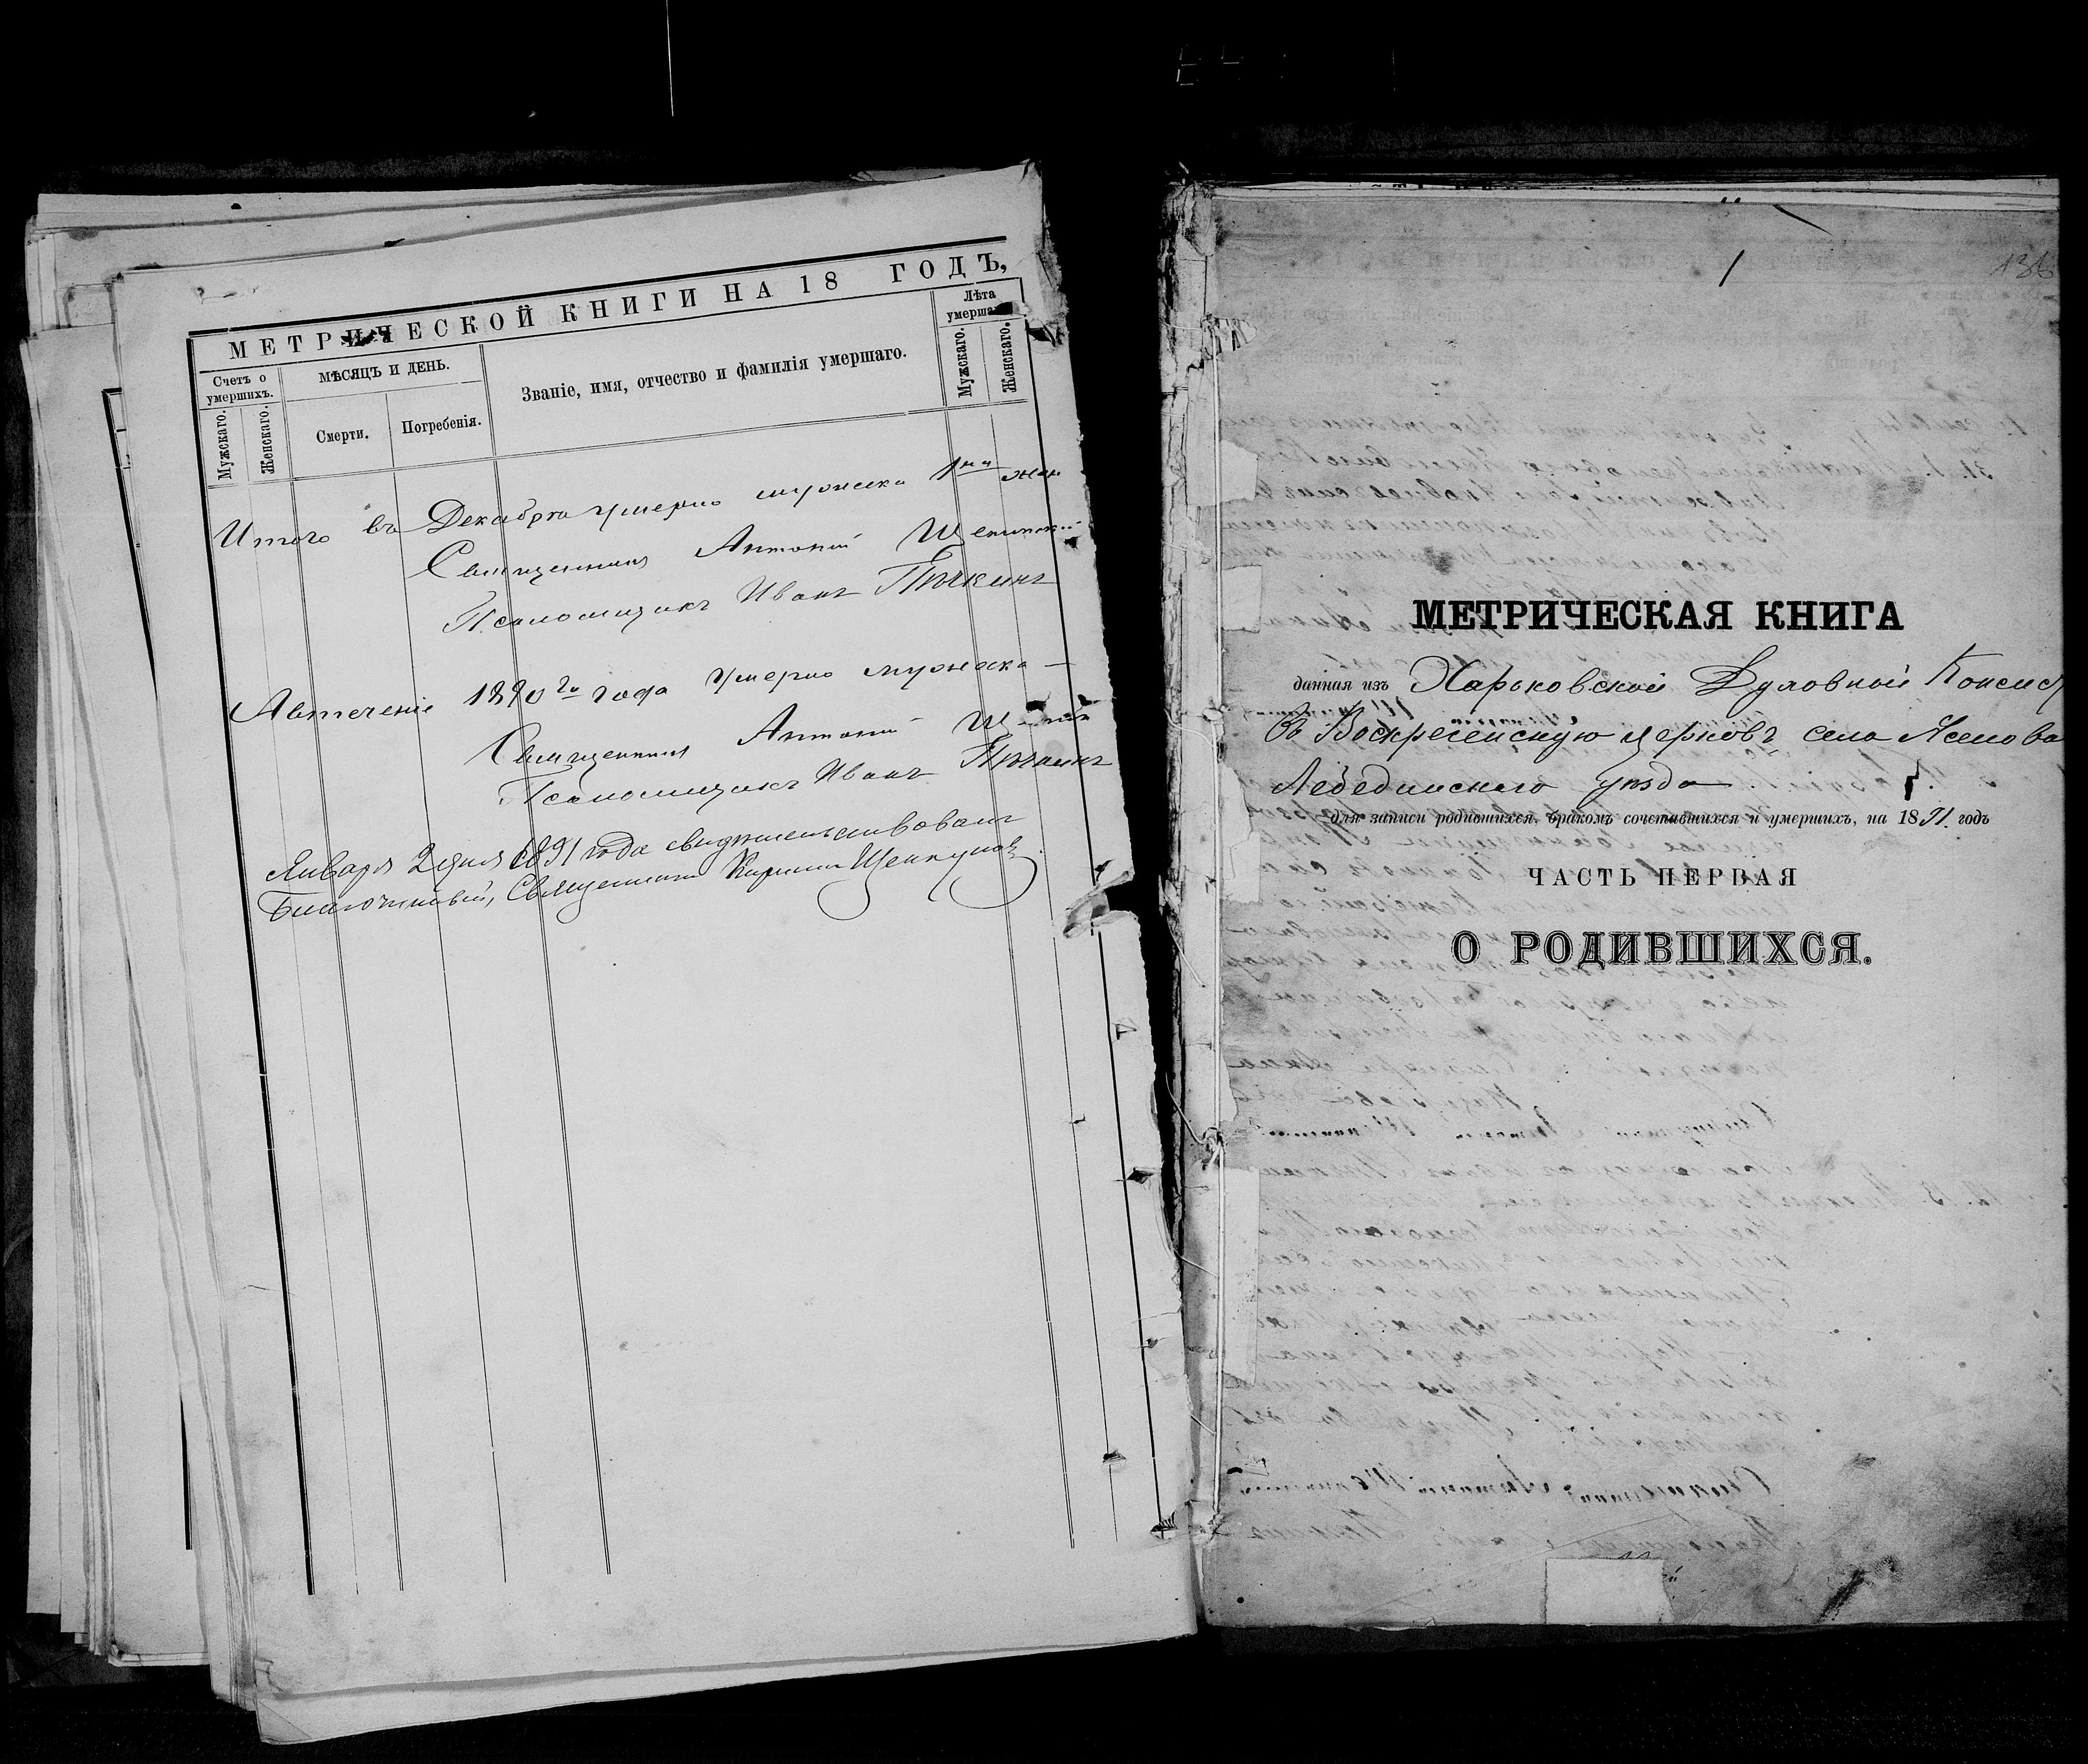 МЕТРИЧЕСКОЙ КНИГИ НА 18 ГОДЪ,
Счетъ о умершихъ.
Мужскаго.
Женскаго.
МѢСЯЦЪ И ДЕНЬ.
Смерти.
Погребенія.
Званіе, имя, отчество и фамилія умершаго.
Лѣта умерша
Мужскаго.
Женскаго.
Итого въ Декабрѣ умерло мужеска 1 жен
Священникъ Антоній
Псаломщикъ Иванъ Пѣчкинъ
А втеченіе 1890го года умерло мужеска —
Священникъ Антоній
Псаломщикъ Иванъ Пѣчкинъ
Января 2 дня 1891 года свидѣтельствовалъ
Благочинный, Священникъ
1
136
МЕТРИЧЕСКАЯ КНИГА
данная изъ Харьковской Духовной Консист
въ Воскресенскую церковь села
Лебединскаго уѣзда
для записи родившихся, бракомъ сочетавшихся и умершихъ, на 1891. годъ
ЧАСТЬ ПЕРВАЯ
О РОДИВШИХСЯ.